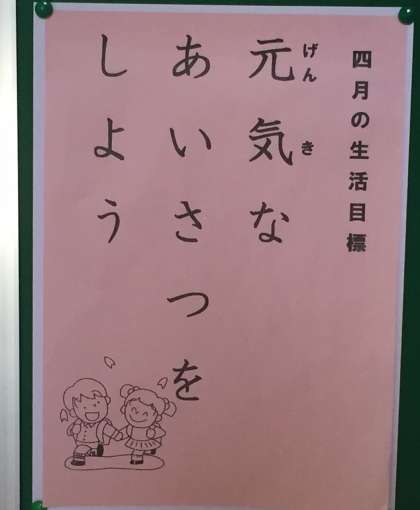 四月の生活目標
元気な
げんき
あいさつを
しよう